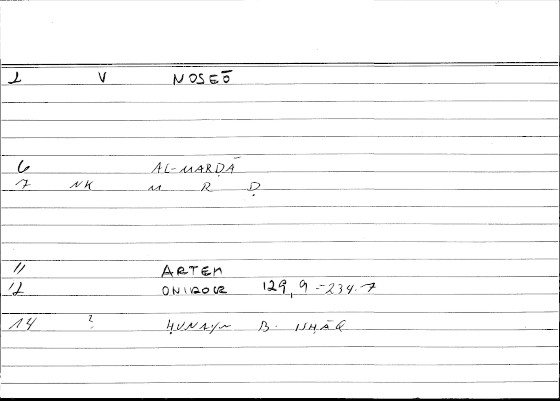 1 V NOSEŌ
6 AL-MARḌĀ
7 NK M R Ḍ
11 ARTEM
12 ONIROCR 129,9-234.7
14 ? ḤUNAYN B. ISḤĀQ